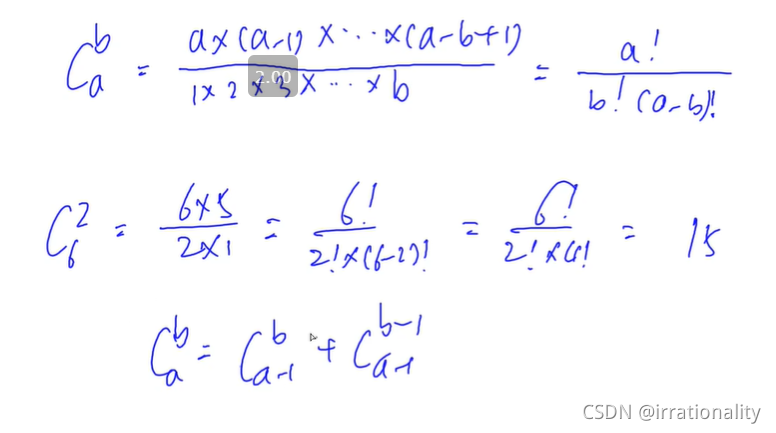 C_a^b = a×(a-1)×...×(a-b+1) / 1×2×3×...×b = a! / b!(a-b)!
2.00
C_6^2 = 6×5 / 2×1 = 6! / 2!×(6-2)! = 6! / 2!×4! = 15
C_a^b = C_{a-1}^b + C_{a-1}^{b-1}
CSDN @irrationality